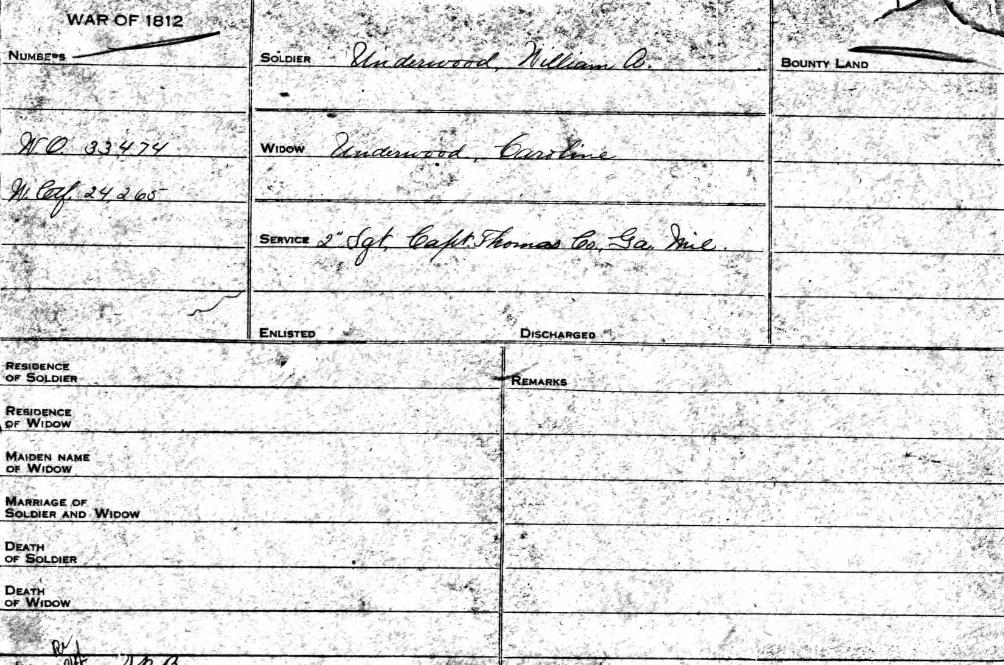 WAR OF 1812
NUMBERS
SOLDIER Underwood, William A.
BOUNTY LAND
W.O. 33474
WIDOW Underwood, Caroline
W. Ctf. 24,265
SERVICE 2" Sgt. Capt. Thomas Co, Ga. Mil.
ENLISTED DISCHARGED
RESIDENCE
OF SOLDIER
REMARKS
RESIDENCE
OF WIDOW
MAIDEN NAME
OF WIDOW
MARRIAGE OF
SOLDIER AND WIDOW
DEATH
OF SOLDIER
DEATH
OF WIDOW